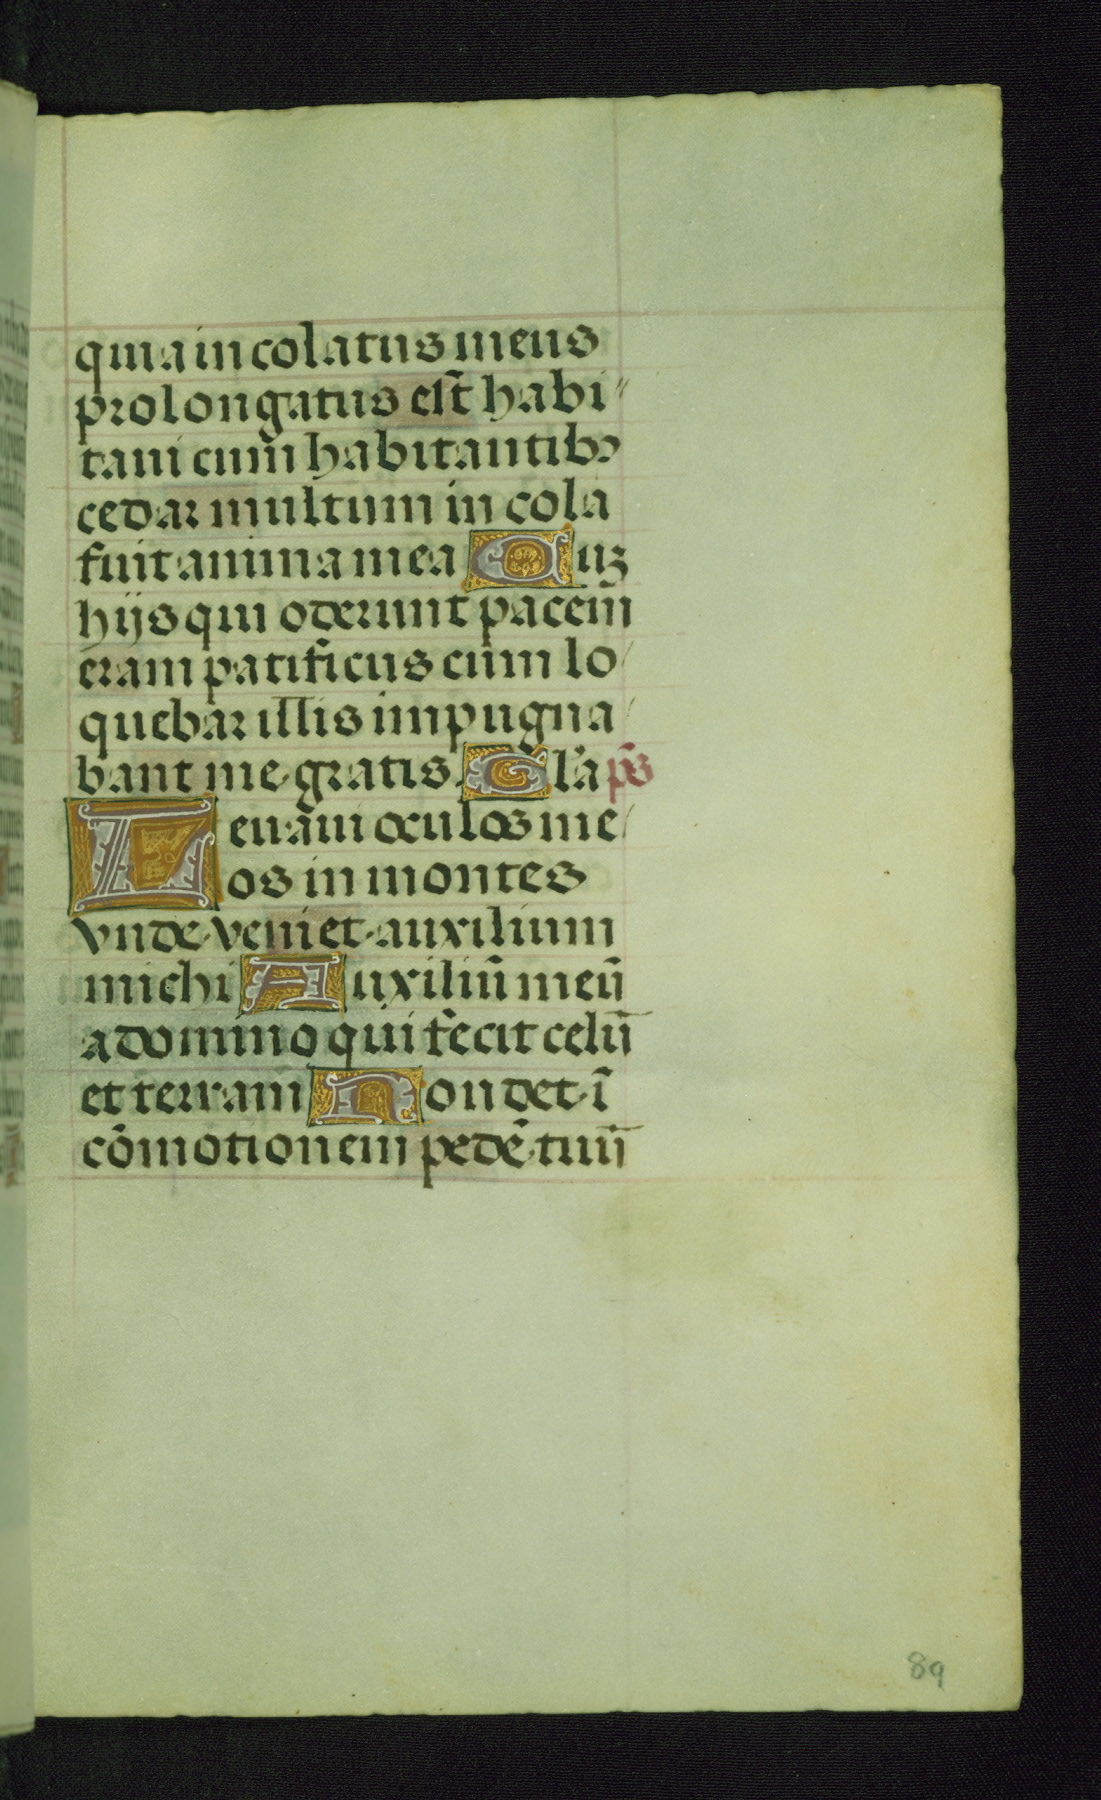 quia incolatus meus
prolongatus est habi
taui cum habitantibꝫ
cedar multum in cola
fuit anima mea Cuꝫ
hijs qui oderunt pacem̄
eram patificus cum lo
quebar illis impugna
bant me gratis. Gl'a ps̄
Leuaui oculos me
os in montes
vnde veniet auxilium
michi Auxiliū meū
a domino qui fecit celū
et terram Non det ī
cōmotionem pedē tuū
89